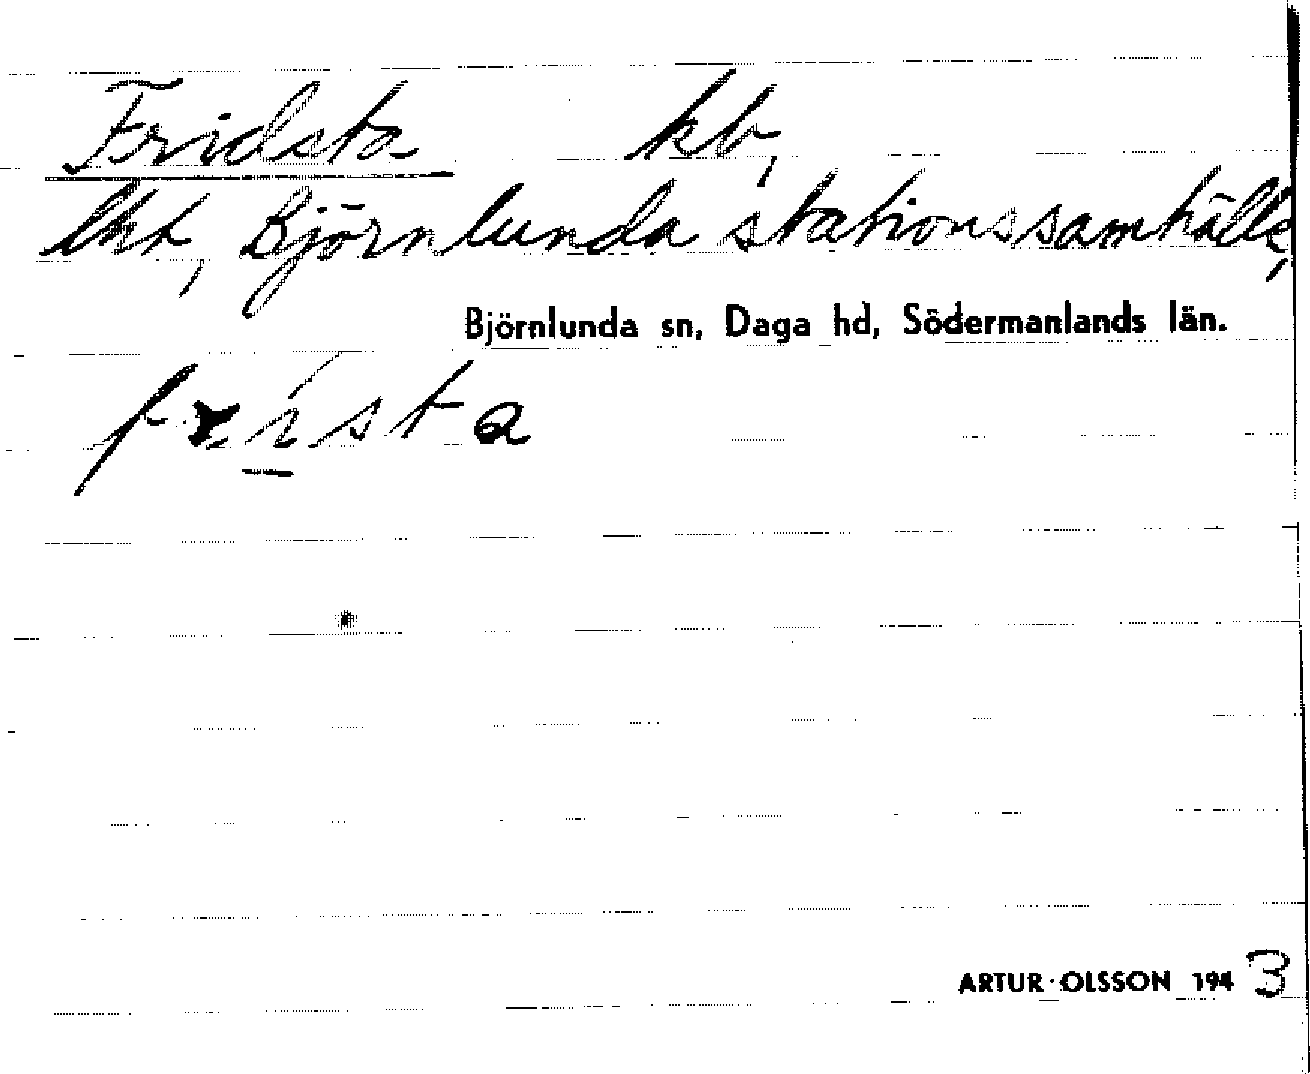 Fridsta kb,
lht, Björnlunda stationssamhälle,
Björnlunda sn, Daga hd, Södermanlands län.
frísta
ARTUR OLSSON 1943